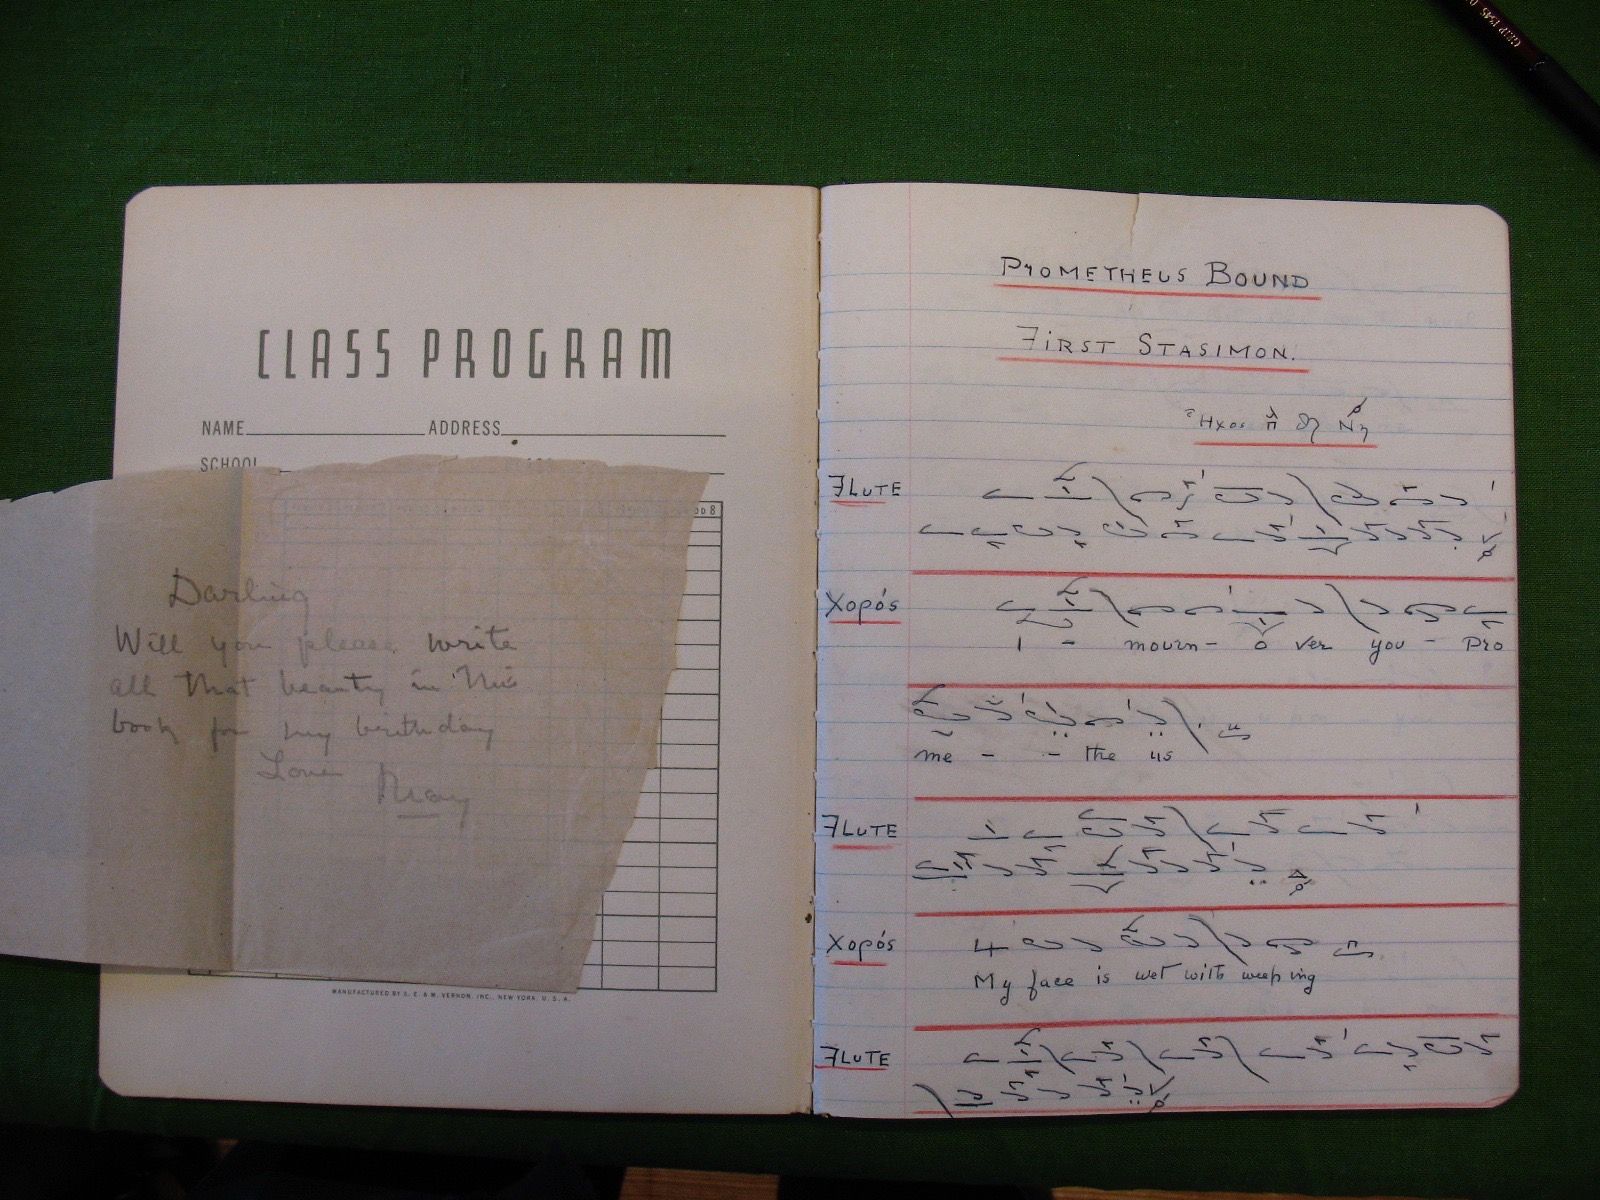 CLASS PROGRAM
NAME ADDRESS
SCHOOL
Darling
Will you please write
all that beauty in this
book for my birthday
Love
May
MANUFACTURED BY S. E. & M. VERNON, INC., NEW YORK, U. S. A.
PROMETHEUS BOUND
FIRST STASIMON.
Ἦχος
FLUTE
Χορός
I - mourn - o ver you - Pro
me - - the us
FLUTE
Χορός
My face is wet with weeping
FLUTE